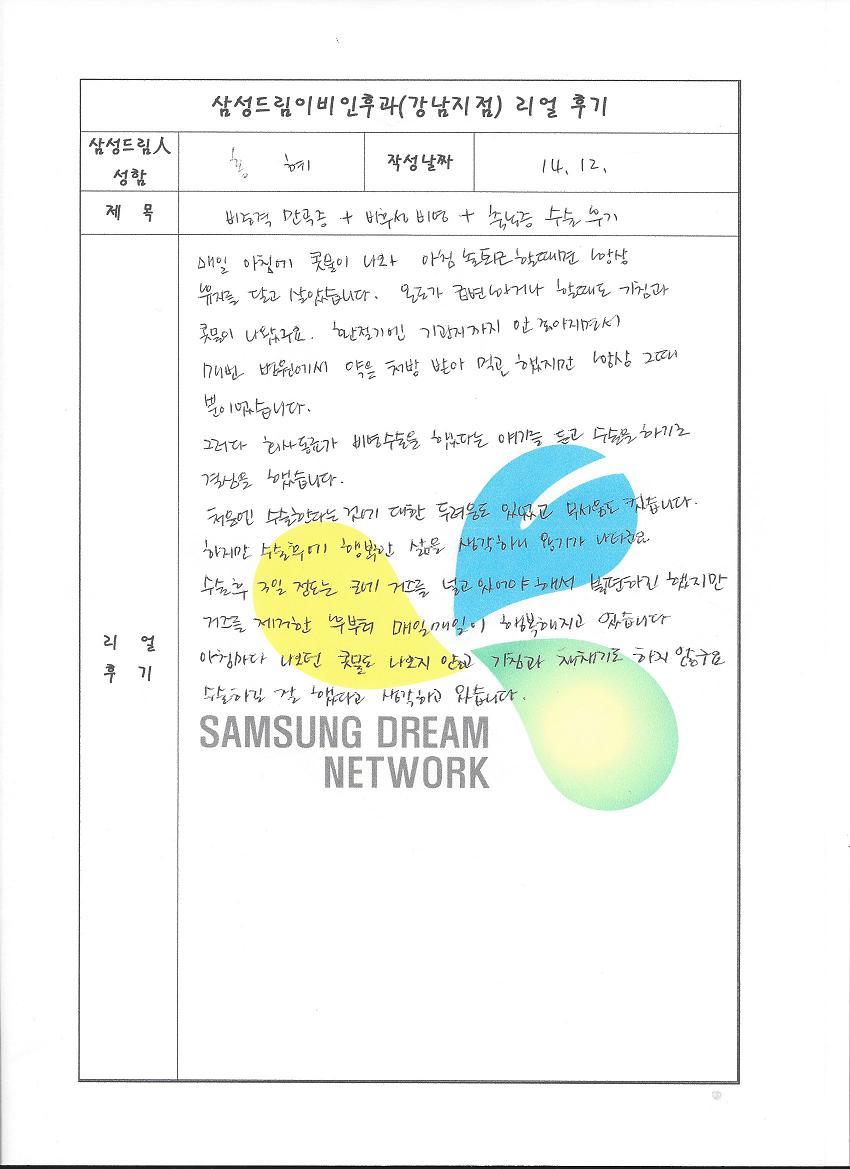 삼성드림이비인후과(강남지점) 리얼 후기
삼성드림人
성함
홍 혜
작성날짜
14. 12.
제 목
비중격 만곡증 + 비후성 비염 + 축농증 수술 후기
매일 아침에 콧물이 나와 아침 출퇴근 할때면 항상
휴지를 달고 살았습니다. 온도가 급변하거나 할때도 기침과
콧물이 나왔구요. 환절기엔 기관지까지 안 좋아지면서
매번 병원에서 약을 처방 받아 먹곤 했지만 항상 그때
뿐이었습니다.
그러다 회사동료가 비염수술을 했다는 얘기를 듣고 수술을 하기로
결심을 했습니다.
처음엔 수술한다는 것에 대한 두려움도 있었고 무서움도 컸습니다.
하지만 수술후에 행복한 삶을 생각하니 용기가 나더라구요
수술후 3일 정도는 코에 거즈를 넣고 있어야 해서 불편하긴 했지만
거즈를 제거한 후부터 매일매일이 행복해지고 있습니다
아침마다 나오던 콧물도 나오지 않고 기침과 재채기도 하지 않구요
수술하길 잘 했다고 생각하고 있습니다.
리 얼
후 기
SAMSUNG DREAM
NETWORK